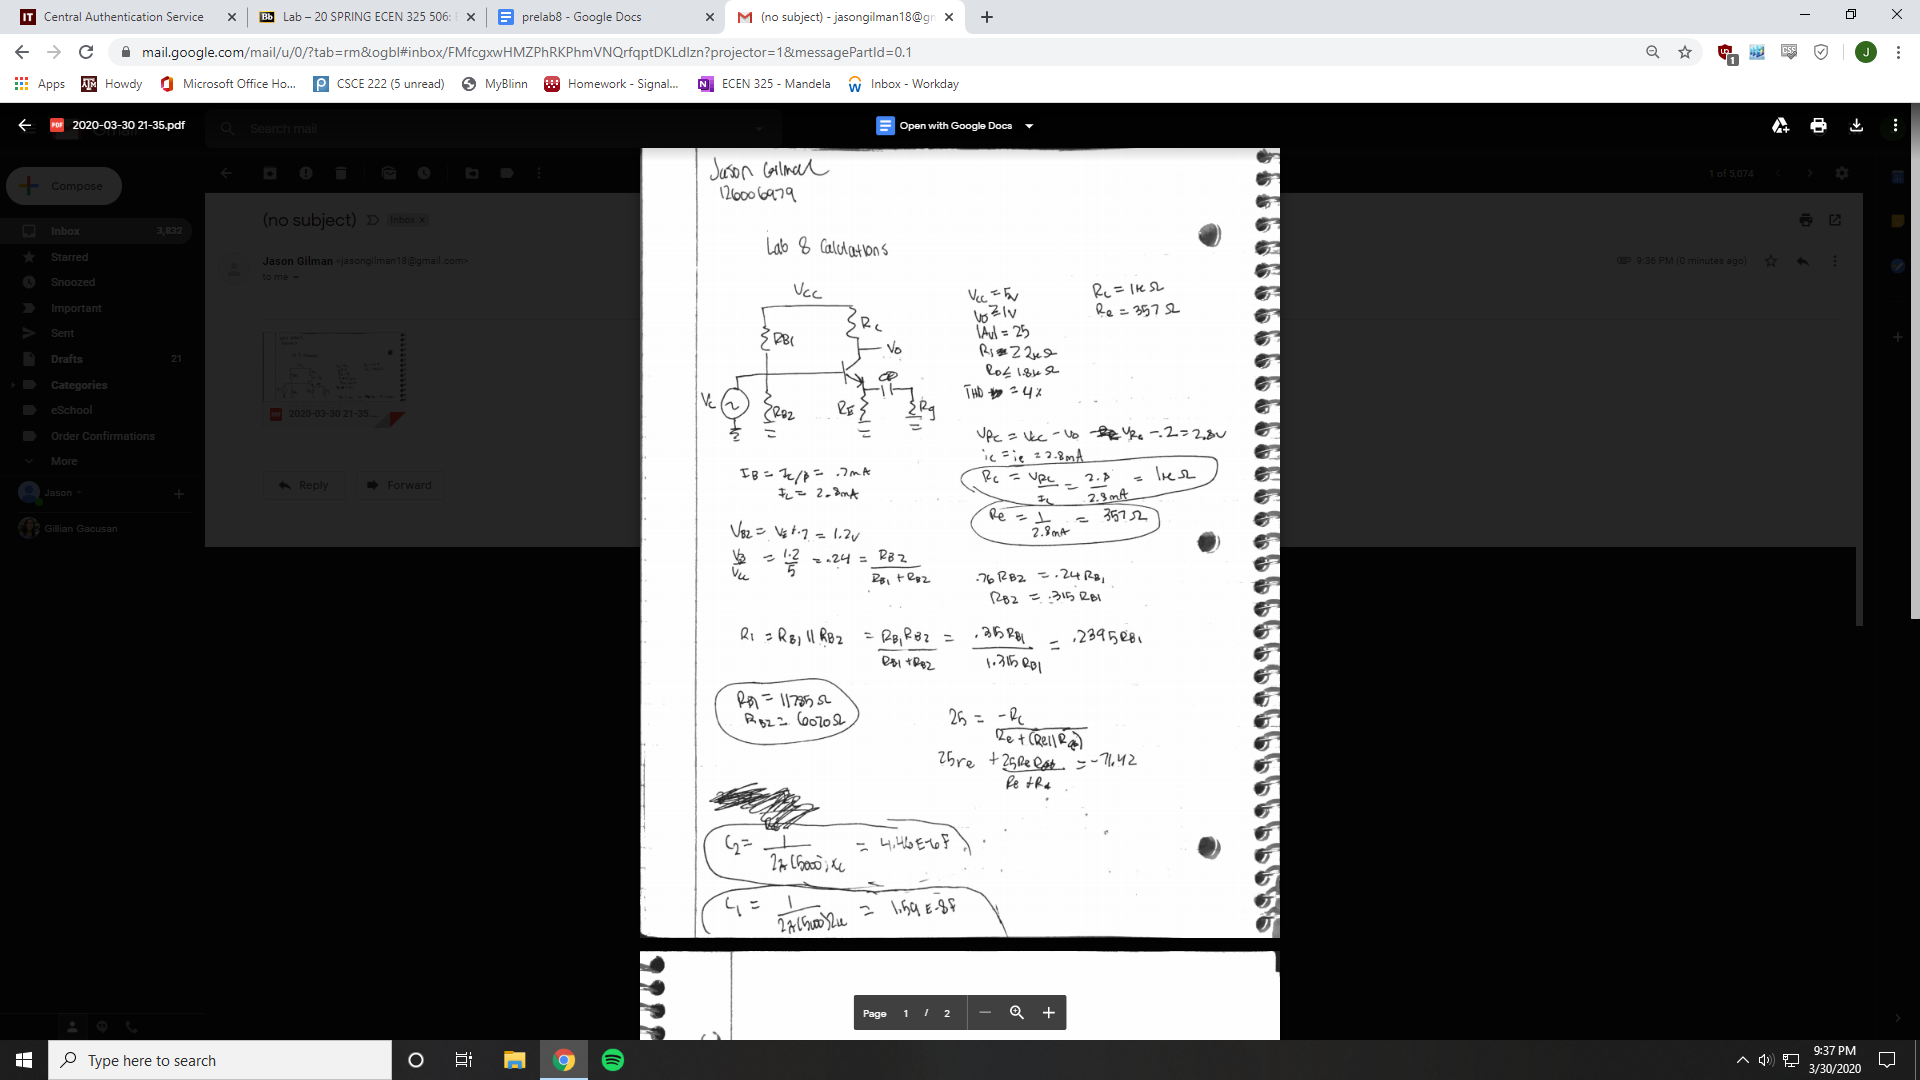 Central Authentication Service
Lab – 20 SPRING ECEN 325 506:
prelab8 - Google Docs
(no subject) - jasongilman18@gm
mail.google.com/mail/u/0/?tab=rm&ogbl#inbox/FMfcgxwHMZPhRKPhmVNQrfqptDKLdIzn?projector=1&messagePartId=0.1
Apps
Howdy
Microsoft Office Ho...
CSCE 222 (5 unread)
MyBlinn
Homework - Signal...
ECEN 325 - Mandela
Inbox - Workday
2020-03-30 21-35.pdf
Open with Google Docs
Search mail
Compose
1 of 5,074
Inbox 3,832
Starred
Snoozed
Important
Sent
Drafts 21
Categories
eSchool
Order Confirmations
More
Jason
Gillian Gacusan
(no subject) Inbox x
Jason Gilman <jasongilman18@gmail.com>
to me
9:36 PM (0 minutes ago)
2020-03-30 21-35...
Reply
Forward
Jason Gilman
126006979
Lab 8 Calculations
Vcc
RB1
Rc
Vo
RB2
RE
Rg
Vcc = 5v
Vo ≥ 1v
|Av| = 25
Ri ≥ 2kΩ
Ro ≤ 1.8kΩ
THD = 4%
Rc = 1kΩ
Re = 357Ω
VRc = Vcc - Vo - VRe - .2 = 2.8v
ic = ie = 2.8mA
Rc = VRc / Ic = 2.8 / 2.8mA = 1kΩ
Re = 1 / 2.8mA = 357Ω
IB = Ic/β = .2mA
Ic = 2.8mA
VB2 = VE + .7 = 1.2v
VB / Vcc = 1.2 / 5 = .24 = RB2 / RB1 + RB2
.76 RB2 = .24 RB1
RB2 = .315 RB1
Ri = RB1 || RB2 = RB1 RB2 / RB1 + RB2 = .315 RB1 / 1.315 RB1 = .2395 RB1
RB1 = 11785Ω
RB2 = 6020Ω
25 = -Rc / Re + (Re||Rg)
25re + = -71.42
C2 = 1 / 2π(5000) = 4.46E-6F
C1 = 1 / 2π(5000)2k = 1.59E-8F
Page 1 / 2
Type here to search
9:37 PM
3/30/2020